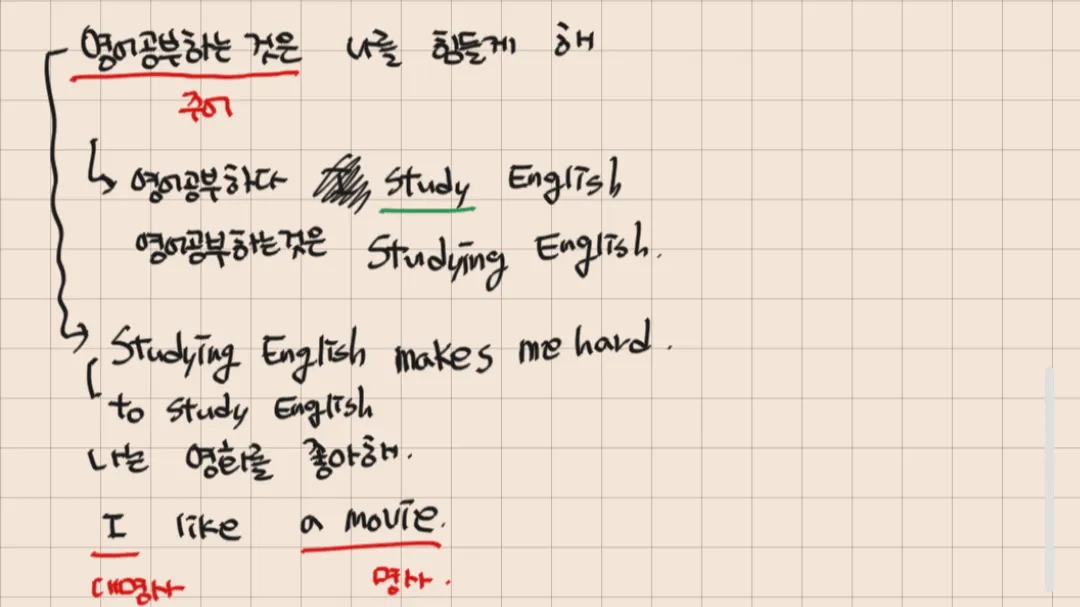 영어공부하는 것은 나를 힘들게 해
주어
영어공부하다 Study English
영어공부하는것은 Studying English.
Studying English makes me hard.
to study English
나는 영화를 좋아해.
I like a movie.
대명사 명사.